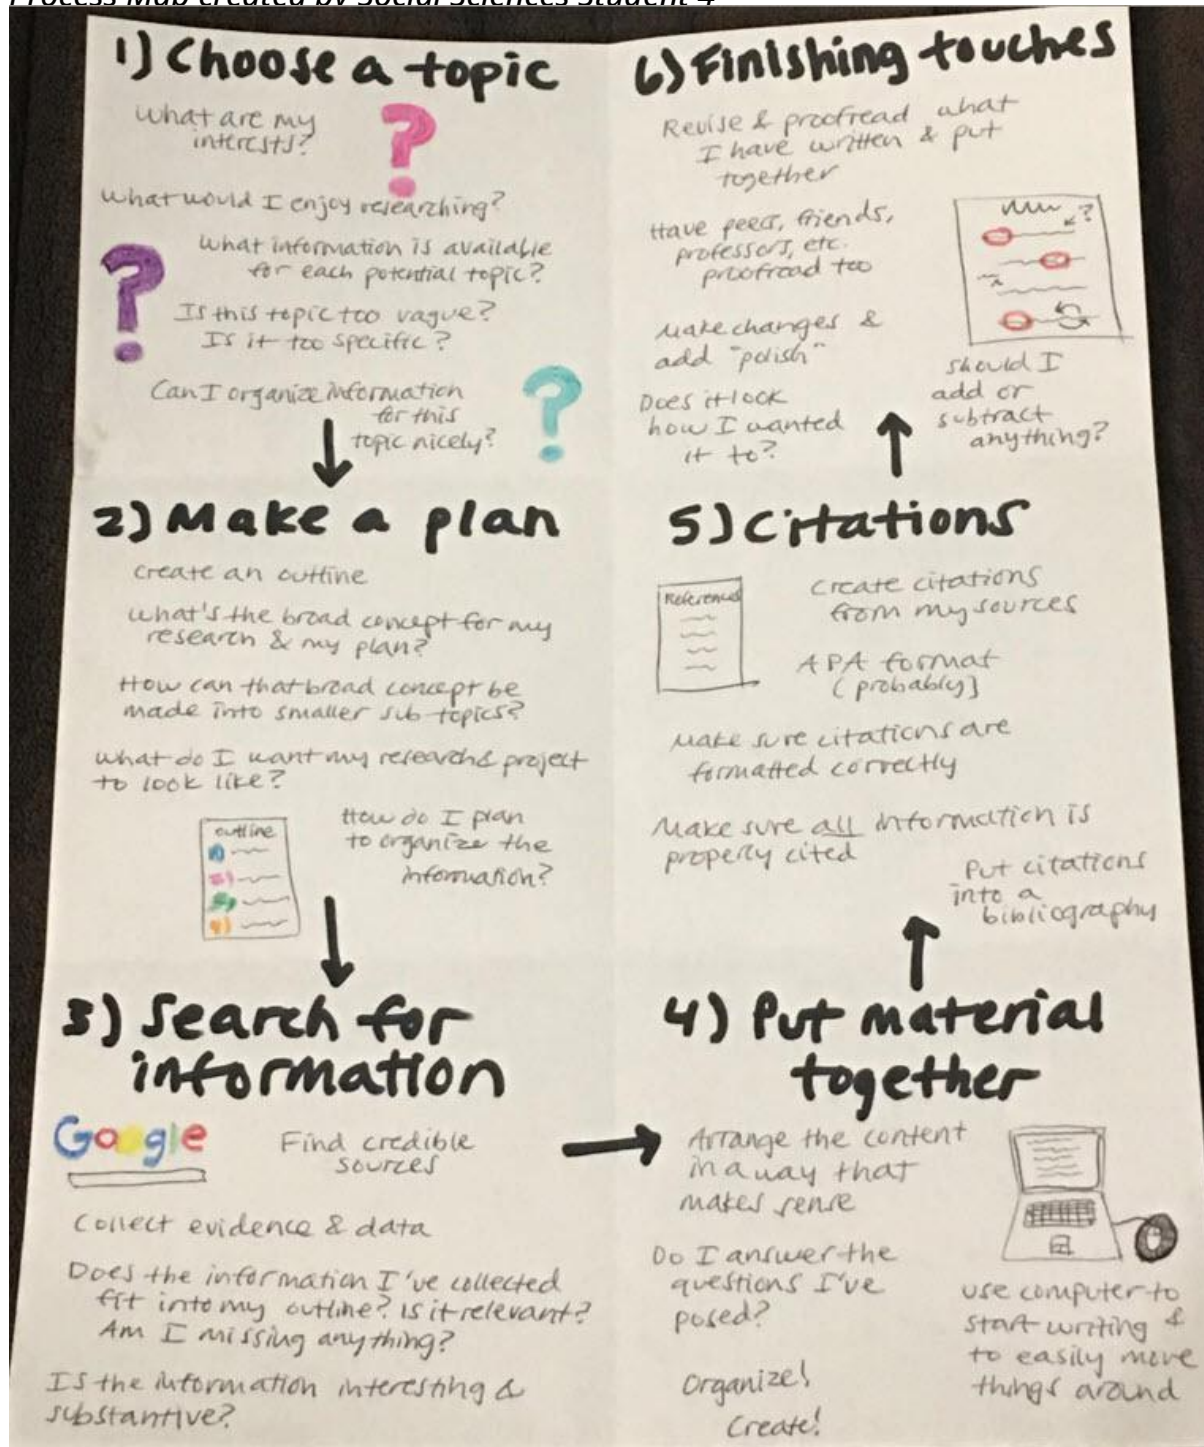 Process Map created by Social Sciences Student 4
1) Choose a topic
What are my
interests?
?
What would I enjoy researching?
?
What information is available
for each potential topic?
Is this topic too vague?
Is it too specific?
Can I organize information
for this
topic nicely?
?
2) Make a plan
create an outline
what's the broad concept for my
research & my plan?
How can that broad concept be
made into smaller sub topics?
what do I want my research & project
to look like?
outline
1)
2)
3)
4)
How do I plan
to organize the
information?
3) Search for
information
Google
Find credible
sources
Collect evidence & data
Does the information I've collected
fit into my outline? Is it relevant?
Am I missing anything?
Is the information interesting &
substantive?
4) Put material
together
Arrange the content
in a way that
makes sense
Do I answer the
questions I've
posed?
Organize!
Create!
use computer to
start writing &
to easily move
things around
5) Citations
References
create citations
from my sources
APA format
(probably)
Make sure citations are
formatted correctly
Make sure all information is
properly cited
Put citations
into a
bibliography
6) Finishing touches
Revise & proofread what
I have written & put
together
Have peers, friends,
professors, etc.
proofread too
?
Make changes &
add "polish"
Does it look
how I wanted
it to?
should I
add or
subtract
anything?